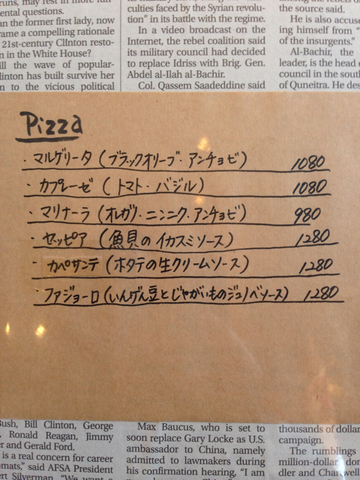 runs, may rest in
an the former first lady, now
ame a compelling rationale
21st-century Clinton resto-
n in the White House?
ll the wave of popular-
linton has built survive her
n to the vicious political
culties faced by the Syrian revolu-
tion" in its battle with the regime.
In a video broadcast on the
Internet, the rebel coalition said
its military council had decided
to replace Idriss with Brig. Gen.
Abdel al-Ilah al-Bachir.
Col. Qassem Saadeddine said
the source said.
He is also accu
ing himself from "
of the insurgents."
Al-Bachir, the
leader, is the head
council in the south
of Quneitra. He des
Pizza
・マルゲリータ(ブラックオリーブ・アンチョビ) 1080
・カプレーゼ(トマト・バジル) 1080
・マリナーラ(オレガノ・ニンニク・アンチョビ) 980
・セッピア(魚貝のイカスミソース) 1280
・カペサンテ(ホタテの生クリームソース) 1280
・ファジョーロ(いんげん豆とじゃがいものジェノベソース) 1280
Bush, Bill Clinton, George
, Ronald Reagan, Jimmy
er and Gerald Ford.
is a real concern for career
mats," said AFSA President
rt Silverman. "We want a
Max Baucus, who is set to
soon replace Gary Locke as U.S.
ambassador to China, namely
admitted to lawmakers during
his confirmation hearing, "I am
thousands of dollar
campaign.
The rumblings
million-dollar do
dler and Chartwel